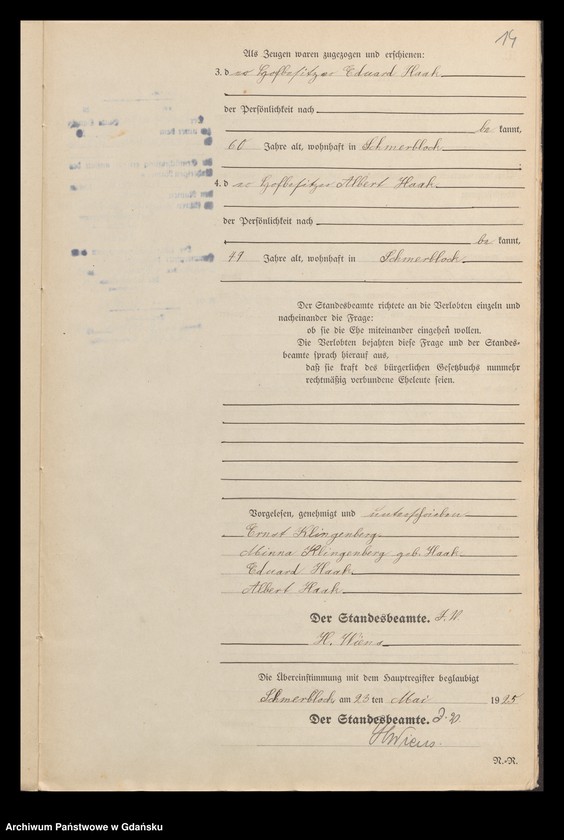 14
Als Zeugen waren zugezogen und erschienen:
3. der Hofbesitzer Eduard Haak
der Persönlichkeit nach
be kannt,
60 Jahre alt, wohnhaft in Schmerblock
4. der Hofbesitzer Albert Haak
der Persönlichkeit nach
be kannt,
49 Jahre alt, wohnhaft in Schmerblock
Der Standesbeamte richtete an die Verlobten einzeln und
nacheinander die Frage:
ob sie die Ehe miteinander eingehen wollen.
Die Verlobten bejahten diese Frage und der Standes-
beamte sprach hierauf aus,
daß sie kraft des bürgerlichen Gesetzbuchs nunmehr
rechtmäßig verbundene Eheleute seien.
Vorgelesen, genehmigt und unterschrieben
Ernst Klingenberg
Minna Klingenberg geb. Haak
Eduard Haak
Albert Haak
Der Standesbeamte. J. V.
H. Wiens
Die Übereinstimmung mit dem Hauptregister beglaubigt
Schmerblock, am 23 ten Mai 1925
Der Standesbeamte. J. V.
HWiens.
N.=R.
Archiwum Państwowe w Gdańsku